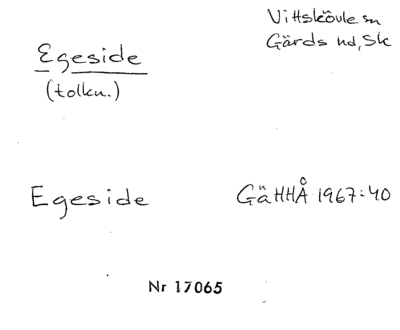 Vittskövle sn
Egeside
Gärds hd, Sk
(tolkn.)
Egeside GäHHÅ 1967:40
Nr 17065